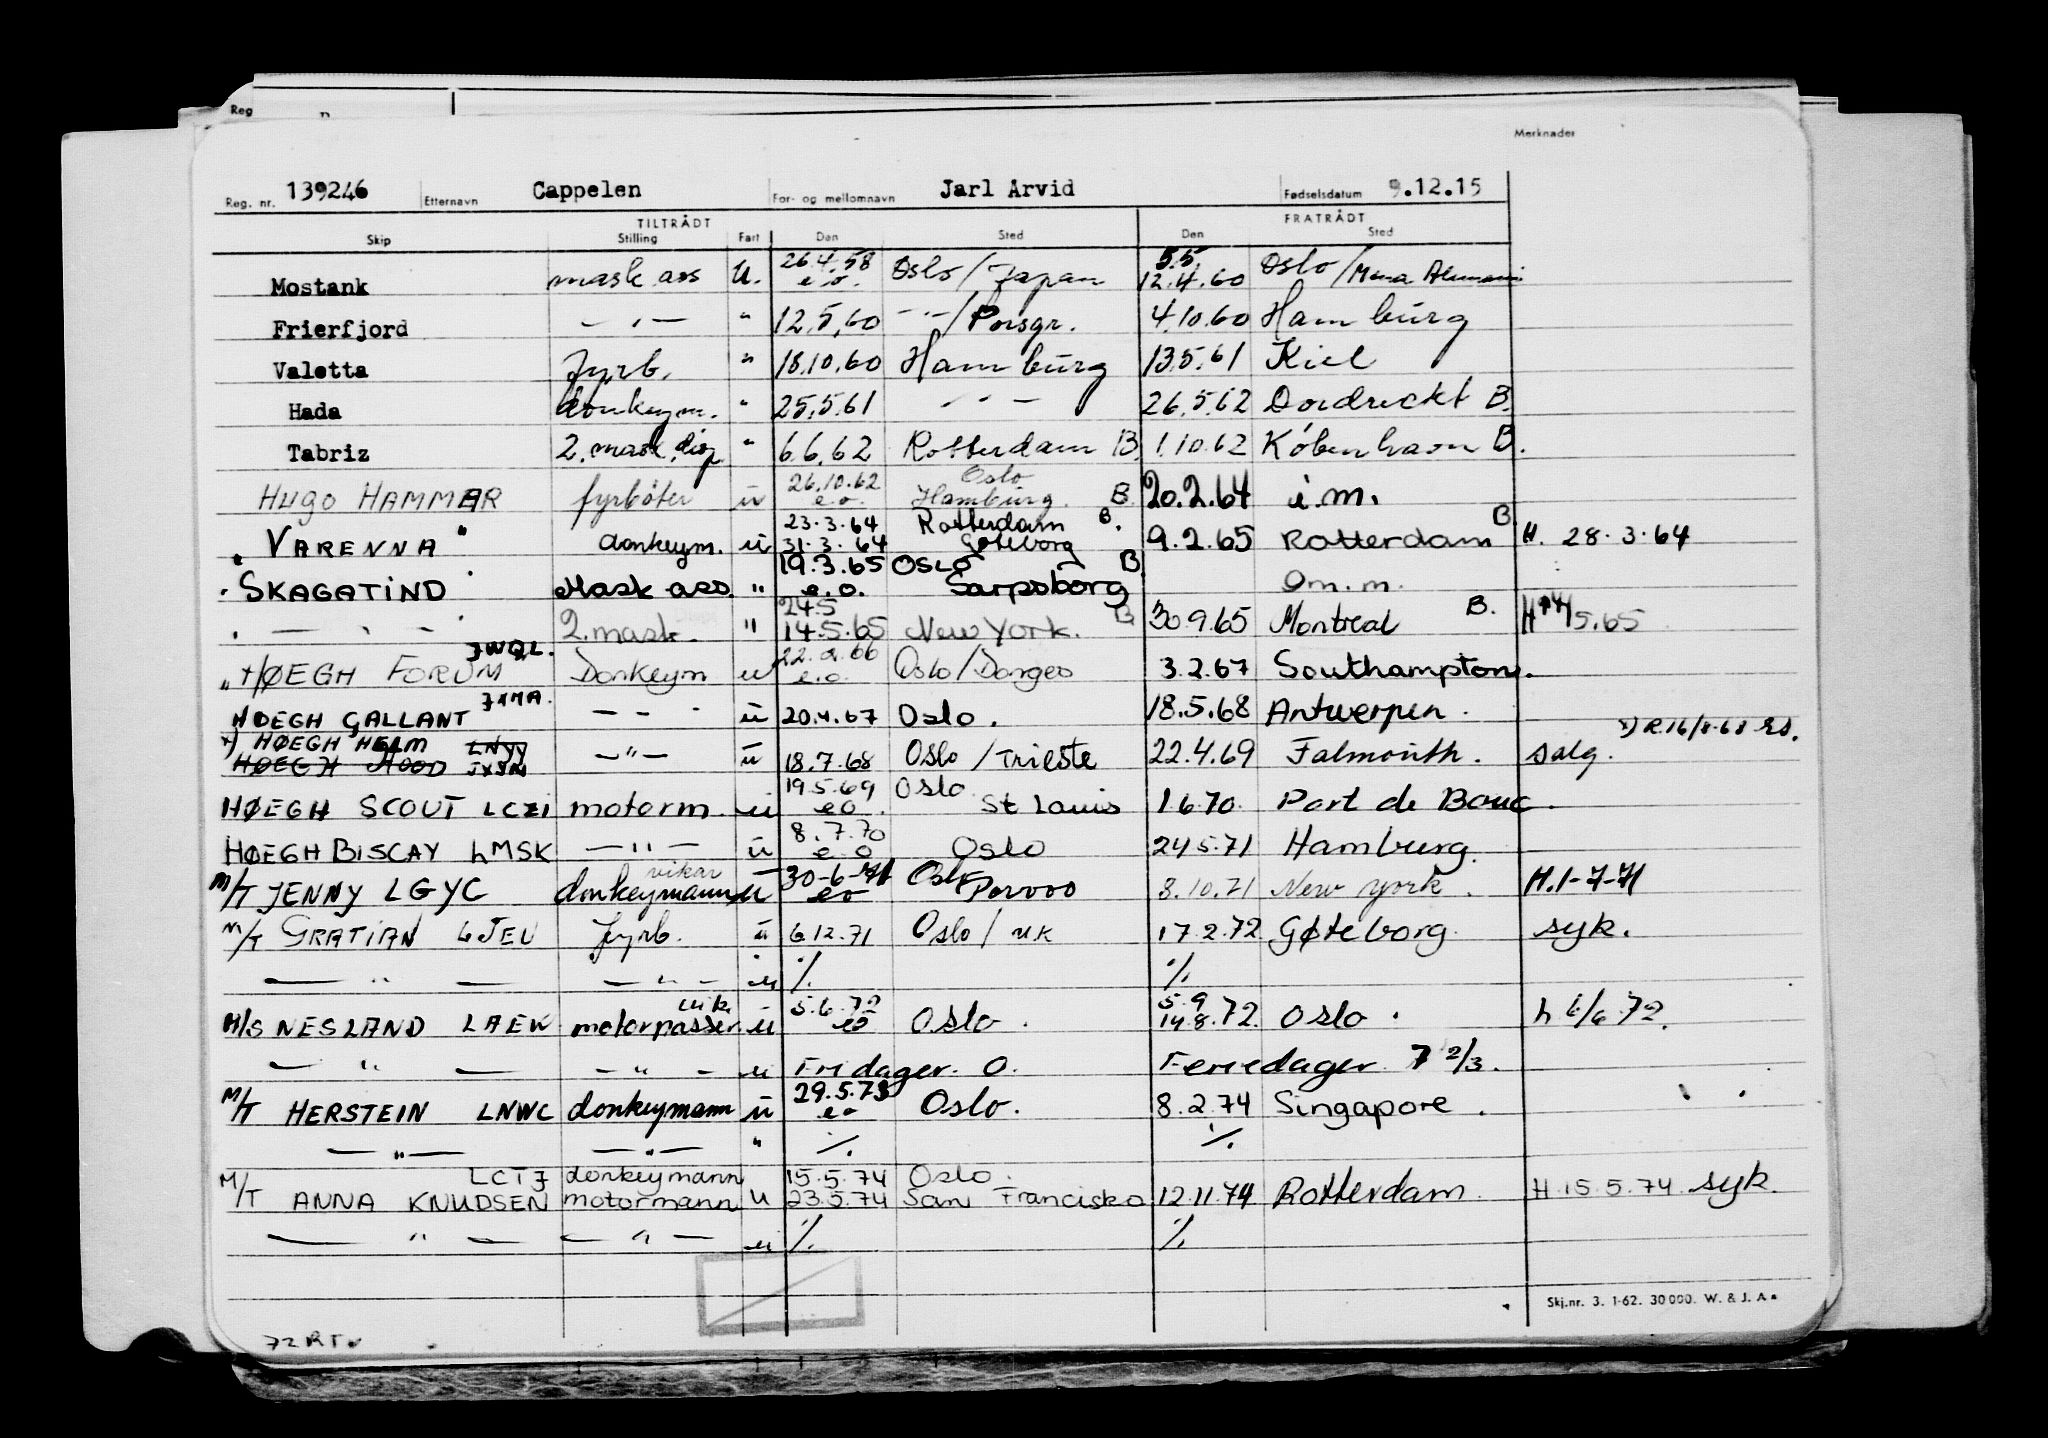 Reg
Merknader
Reg. nr. 139246 Etternavn Cappelen For- og mellomnavn Jarl Arvid Fødselsdatum 9.12.15
TILTRÅDT FRATRÅDT
Skip Stilling Fart Den Sted Den Sted
Mostank mask ass U. 26.4.58 e.o. Oslo/Japan 5.5. 12.4.60 Oslo/Mena
Frierfjord — " — " 12.5.60 — " —/Porsgr. 4.10.60 Hamburg
Valetta Fyrb. " 18.10.60 Hamburg 13.5.61 Kiel
Hada donkeym. " 25.5.61 — " — 26.5.62 Dordreckt B.
Tabriz 2. mask. disp " 6.6.62 Rotterdam B. 1.10.62 København B.
HUGO HAMMER fyrbøter u 26.10.62 e.o. Oslo Hamburg. B. 20.2.64 i.m.
" VARENNA " donkeym. u 23.3.64 31.3.64 Rotterdam B. Gøteborg 9.2.65 Rotterdam B. H. 28.3.64
" SKAGATIND " Mask ass. " 19.3.65 e.o. Oslo B Sarpsborg Om.m.
" — " — " 2. mask. " 24.5 14.5.65 New York. B 30.9.65 Montreal B. H 5.65
" HØEGH FORUM JWQL. Donkeym u 22.2.66 e.o. Oslo/Dongeo 3.2.67 Southampton.
HØEGH GALLANT JXMA. — " — u 20.4.67 Oslo. 18.5.68 Antwerpen.
x) HØEGH HELM LNYY x) R.16/8-68 RD.
HØEGH HOOD — " — u 18.7.68 Oslo/Trieste 22.4.69 Falmouth. salg.
HØEGH SCOUT LCZI motorm. u 19.5.69 eo. Oslo St Louis 1.6.70. Port de Bouc.
HØEGH BISCAY LMSK — " — u 8.7.70 e.o Oslo 24.5.71 Hamburg.
M/T JENNY LGYC vikar donkeymann u 30-6-71 eo Oslo Porvoo 8.10.71 New York. H.1-7-71
M/T GRATIAN LJEU Fyrb. u 6.12.71 Oslo/UK 17.2.72 Gøteborg. syk.
— " — — " — u ./. ./.
M/S NESLAND LAEW vik. motorpasser u 5.6.72 eo Oslo. 5.9 14.8.72. Oslo. h 6/6 72.
— " — — " — u Fridager. 0. Feriedager 7 2/3.
M/T HERSTEIN LNWC donkeymann u 29.5.73 eo Oslo. 8.2.74 Singapore.
— " — — " — " ./. ./.
LCTJ donkeymann 15.5.74 Oslo.
M/T ANNA KNUDSEN motormann u 23.5.74 San Francisko 12.11.74 Rotterdam. H. 15.5.74. syk.
— " — — " — u ./. ./.
Skj.nr. 3. 1-62. 30 000. W. & J. A.
72 RT.